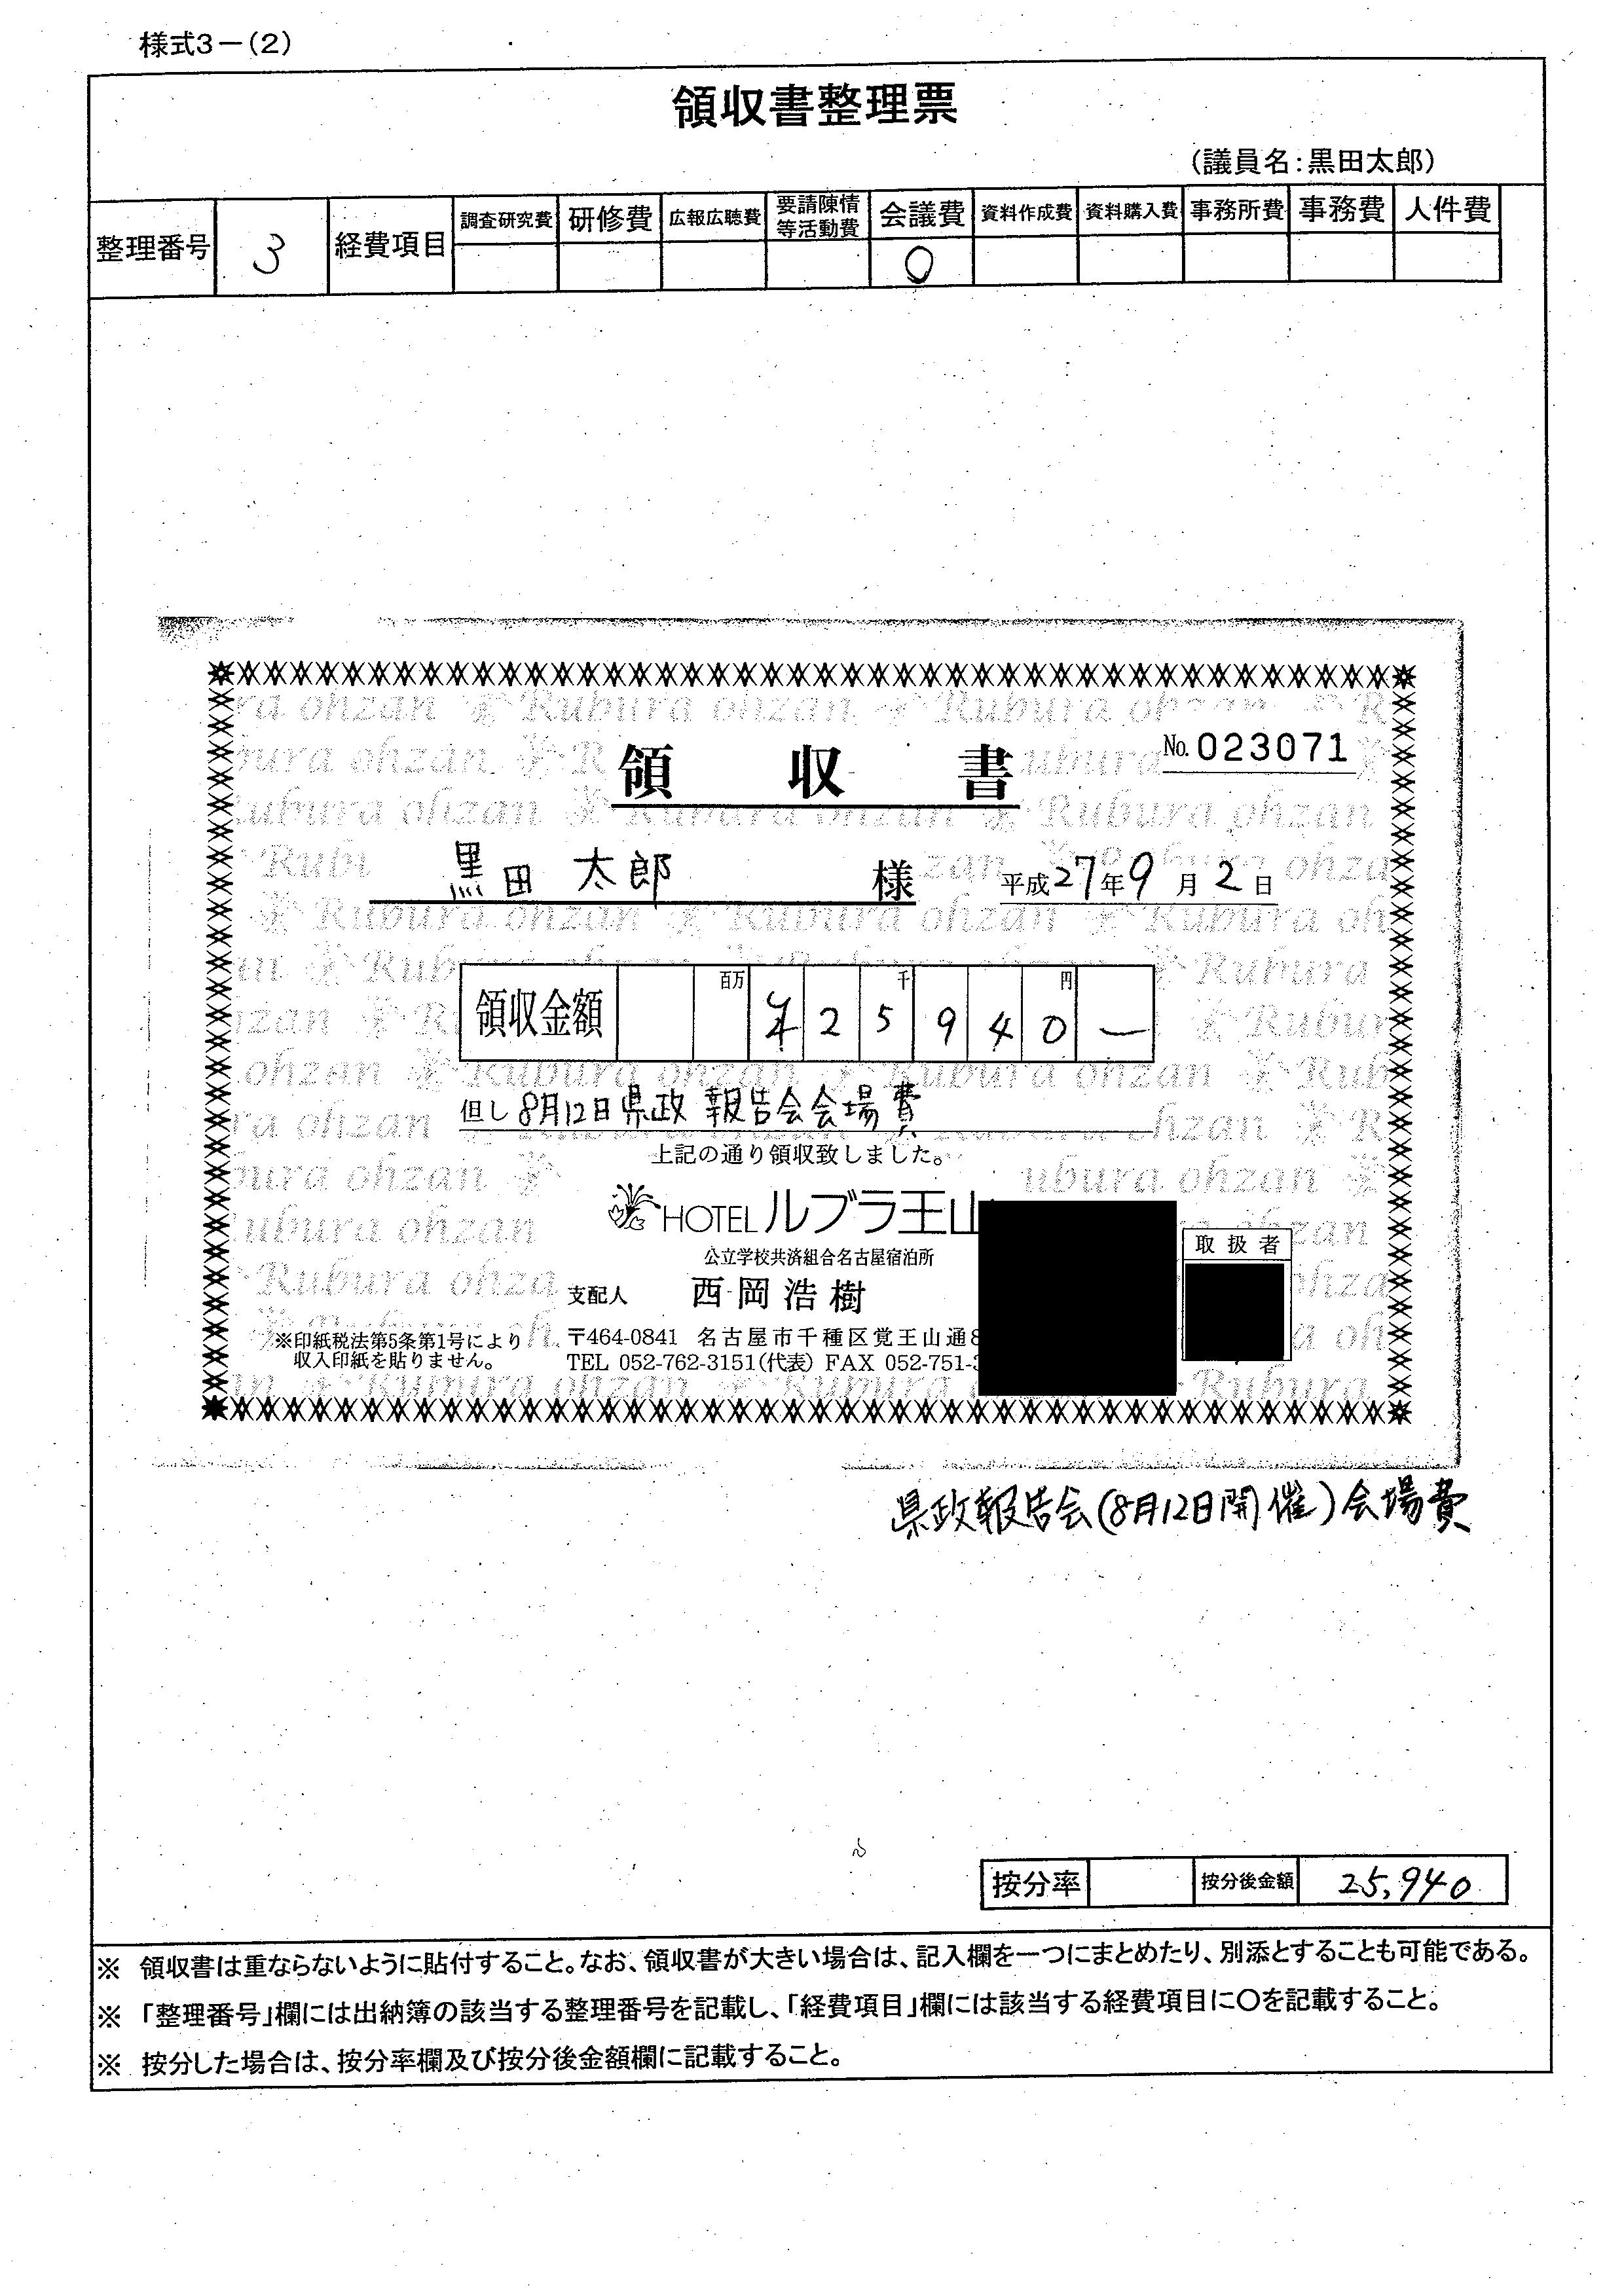 様式3－(2)
領収書整理票
(議員名:黒田太郎)
整理番号 3 経費項目 調査研究費 研修費 広報広聴費 要請陳情等活動費 会議費 資料作成費 資料購入費 事務所費 事務費 人件費
○
領収書
No. 023071
黒田 太郎 様 平成27年9月2日
百万 千 円
領収金額 ¥25940-
但し8月12日県政報告会会場費
上記の通り領収致しました。
HOTEL ルブラ王山
公立学校共済組合名古屋宿泊所
取扱者
支配人 西岡浩樹
※印紙税法第5条第1号により
収入印紙を貼りません。
〒464-0841 名古屋市千種区覚王山通8
TEL 052-762-3151(代表) FAX 052-751-3
県政報告会(8月12日開催)会場費
按分率 按分後金額 25,940
※ 領収書は重ならないように貼付すること。なお、領収書が大きい場合は、記入欄を一つにまとめたり、別添とすることも可能である。
※ 「整理番号」欄には出納簿の該当する整理番号を記載し、「経費項目」欄には該当する経費項目に○を記載すること。
※ 按分した場合は、按分率欄及び按分後金額欄に記載すること。